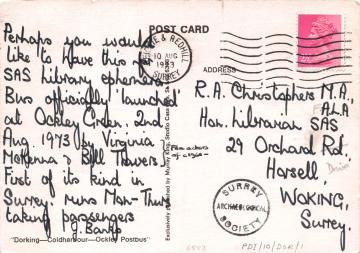 POST CARD
Perhaps you would
like to have this for
SAS Library ephemera.
Bus officially 'launched'
at Ockley Green. 2nd.
Aug. 1973 by Virginia
McKenna & Bill Travers.
First of its kind in
Surrey. runs Mon-Thurs
taking passengers
J. Banks
"Dorking—Coldharbour—Ockley Postbus"
Film actors
of course
& REDHILL
10 AUG
1973
SURREY
ADDRESS
R.A. Christophers M.A.
A.L.A
Hon. Librarian SAS
29 Orchard Rd,
Horsell,
WOKING,
Surrey.
SURREY
ARCHAEOLOGICAL
SOCIETY
PDI/10/DOR/1